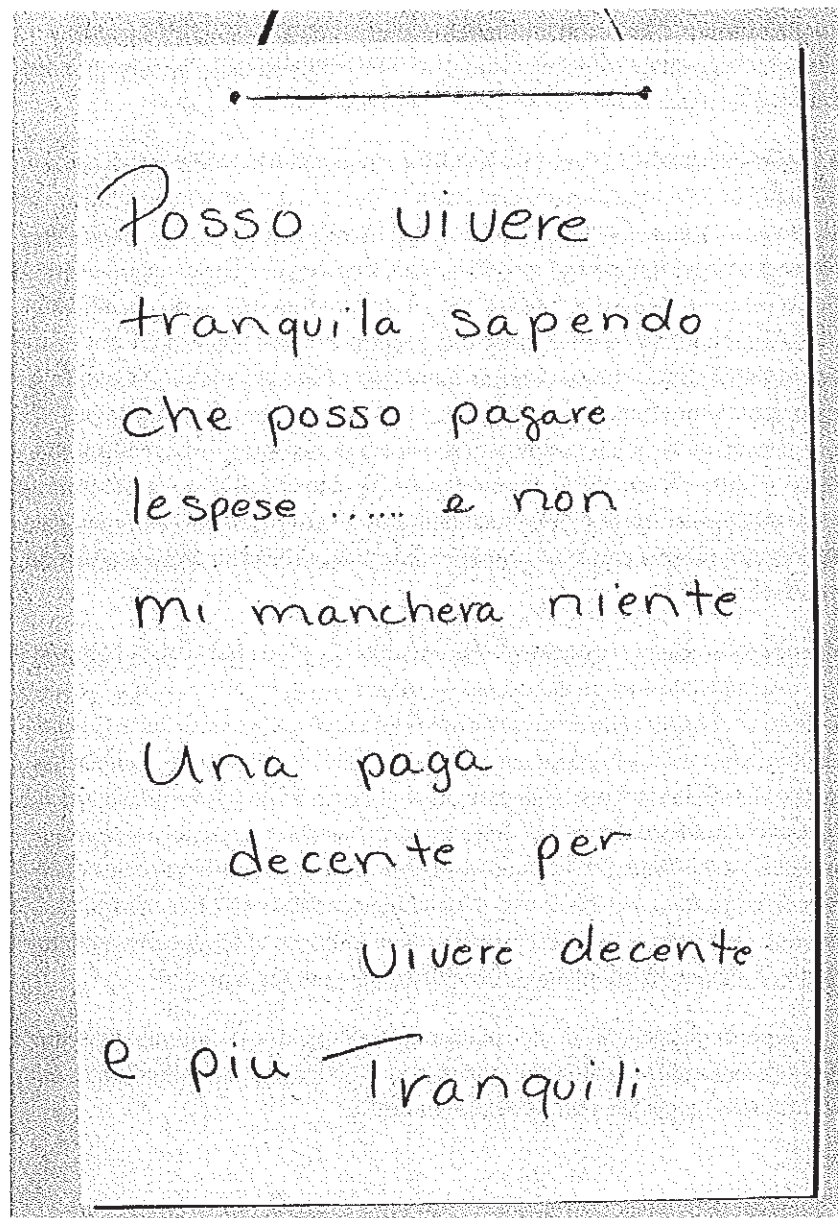 Posso vivere
tranquila sapendo
che posso pagare
lespese ...... e non
mi manchera niente
Una paga
decente per
vivere decente
e piu Tranquili